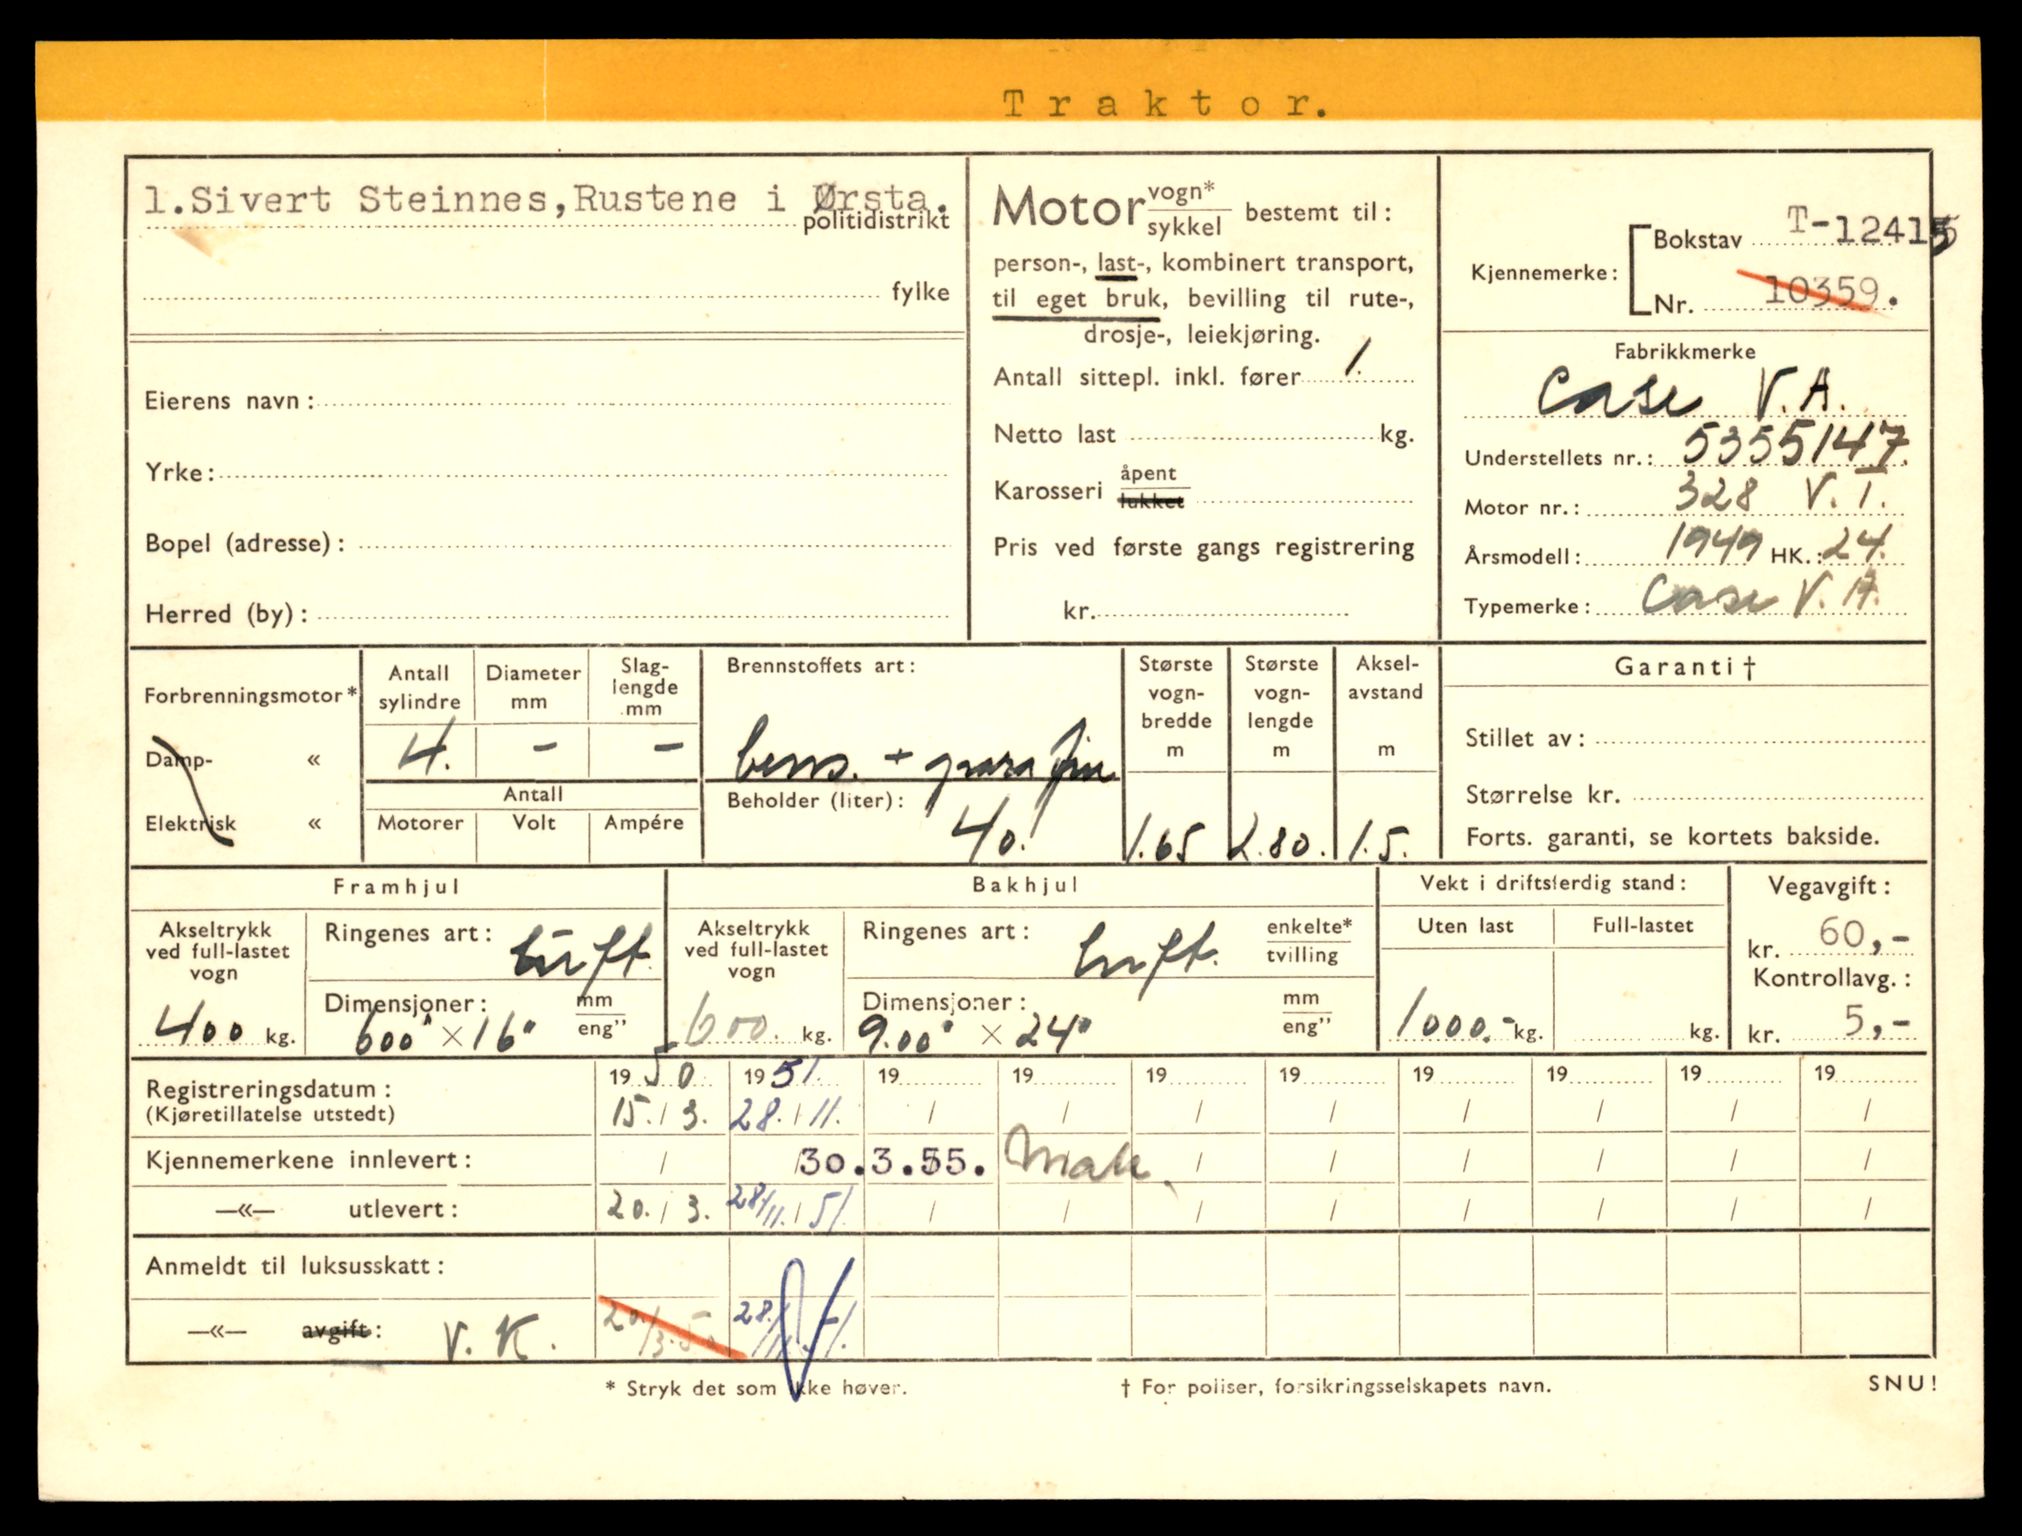 Traktor.
1.Sivert Steinnes,Rustene i Ørsta.
politidistrikt
fylke
Eierens navn:
Yrke:
Bopel (adresse):
Herred (by):
Motor vogn*
sykkel bestemt til:
person-, last-, kombinert transport,
til eget bruk, bevilling til rute-,
drosje-, leiekjøring.
Antall sittepl. inkl. fører 1.
Netto last kg.
Karosseri åpent
lukket
Pris ved første gangs registrering
kr.
Kjennemerke:
Bokstav T-12415
Nr. 10359.
Fabrikkmerke
Case V.A.
Understellets nr.: 5355147
Motor nr.: 328 V.I.
Årsmodell: 1949 HK.: 24.
Typemerke: Case V.A.
Forbrenningsmotor*
Damp- «
Elektrisk «
Antall sylindre
4.
Diameter mm
-
Slag-lengde mm
-
Antall
Motorer Volt Ampére
Brennstoffets art:
bens. + parafin
Beholder (liter):
40.
Største vogn-bredde m
1.65
Største vogn-lengde m
2.80.
Aksel-avstand m
1.5.
Garanti †
Stillet av:
Størrelse kr.
Forts. garanti, se kortets bakside.
Framhjul
Akseltrykk ved full-lastet vogn
400 kg.
Ringenes art: luft.
Dimensjoner: mm
eng"
600" × 16"
Bakhjul
Akseltrykk ved full-lastet vogn
600. kg.
Ringenes art: luft. enkelte*
tvilling
Dimensjoner: mm
eng"
9.00" × 24"
Vekt i driftsferdig stand:
Uten last Full-lastet
1000.- kg. kg.
Vegavgift:
kr. 60,-
Kontrollavg.:
kr. 5,-
Registreringsdatum: 1950 1951. 19 19 19 19 19 19 19 19
(Kjøretillatelse utstedt) 15./3. 28./11. / / / / / / / /
Kjennemerkene innlevert: / 30.3.55. Mak. / / / / / /
—«— utlevert: 20./3. 28/11./51. / / / / / / / /
Anmeldt til luksusskatt:
—«— avgift: V.K. 20/3.50 28./11.51.
* Stryk det som ikke høver.
† For poliser, forsikringsselskapets navn.
SNU!